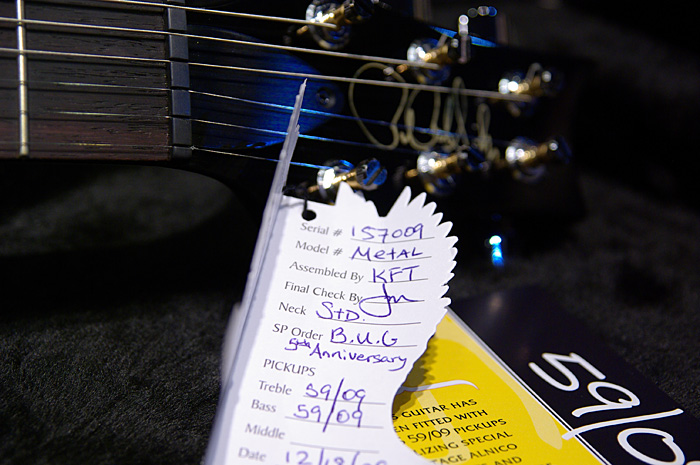 Serial # 157009
Model # METAL
Assembled By KFT
Final Check By
Neck STD.
SP Order B.U.G
5th Anniversary
PICKUPS
Treble 59/09
Bass 59/09
Middle
Date 12/18/09
GUITAR HAS
EN FITTED WITH
59/09 PICKUPS
LIZING SPECIAL
TAGE ALNICO
AND
59/0